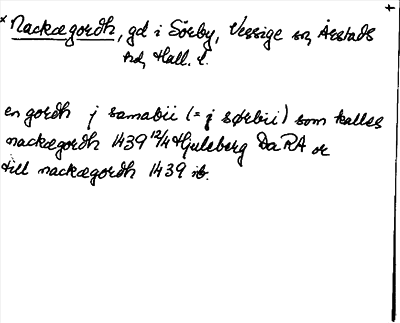 * Nackægordh, gd i Sörby, Vessige sn, Årstads
hd, Hall. l.
en gordh j samabii (= j sørbii) som kalles
nackægordh 1439 12/4 Hjuleberg Da RA or
till nackægordh 1439 ib.